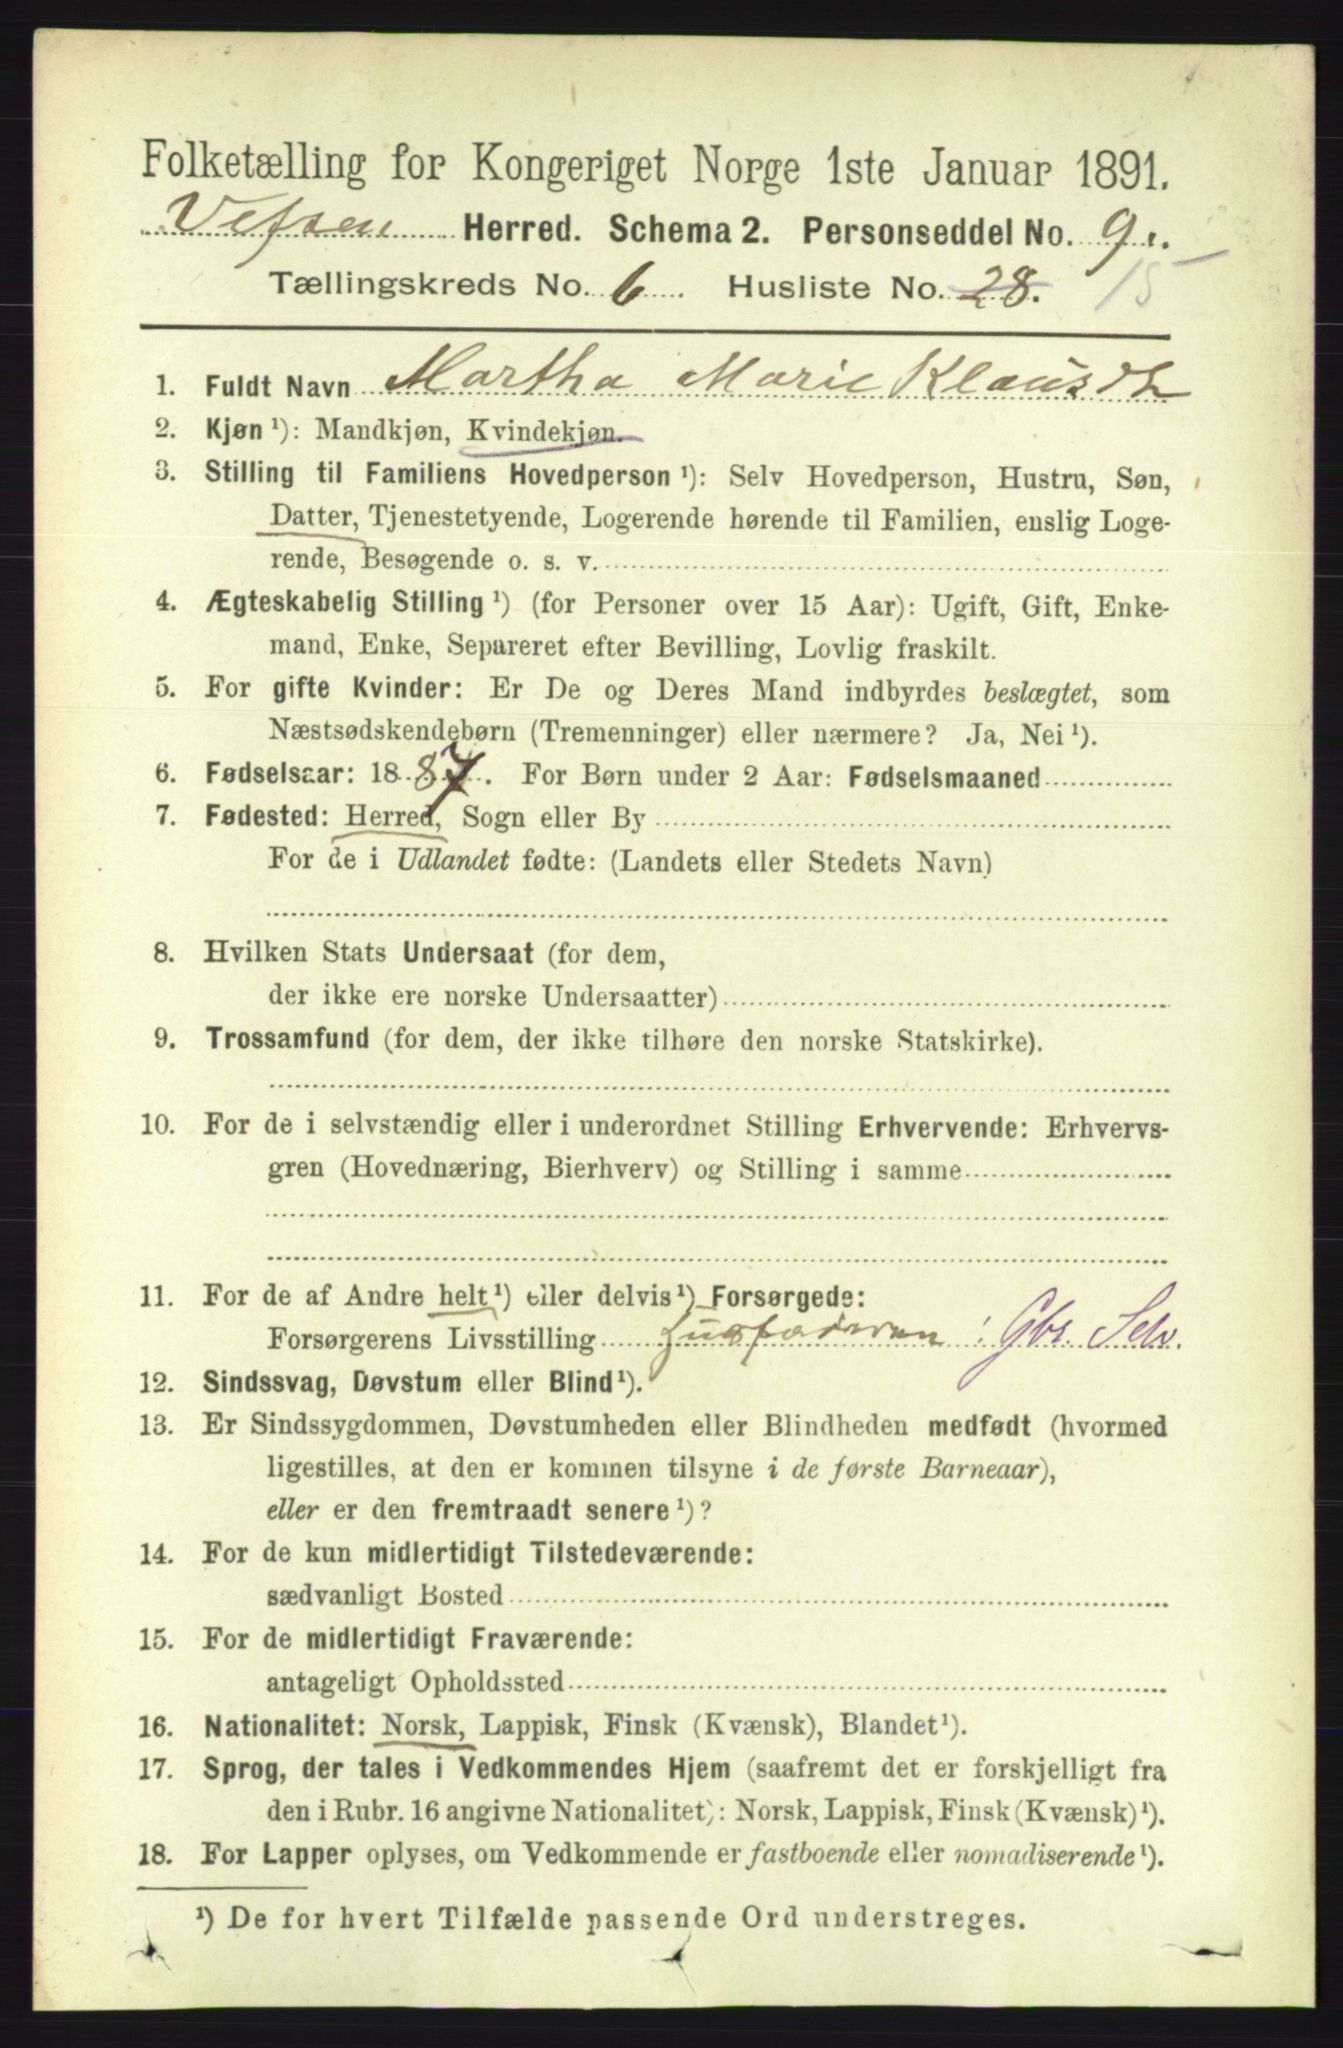 Folketælling for Kongeriget Norge 1ste Januar 1891.
Vefsen Herred. Schema 2. Personseddel No. 9.
Tællingskreds No. 6. Husliste No. 28. 15
1. Fuldt Navn Martha Marie Klausdt
2. Kjøn¹): Mandkjøn, Kvindekjøn.
3. Stilling til Familiens Hovedperson¹): Selv Hovedperson, Hustru, Søn,
Datter, Tjenestetyende, Logerende hørende til Familien, enslig Loge-
rende, Besøgende o. s. v.
4. Ægteskabelig Stilling¹) (for Personer over 15 Aar): Ugift, Gift, Enke-
mand, Enke, Separeret efter Bevilling, Lovlig fraskilt.
5. For gifte Kvinder: Er De og Deres Mand indbyrdes beslægtet, som
Næstsødskendebørn (Tremenninger) eller nærmere? Ja, Nei¹).
6. Fødselsaar: 1887. For Børn under 2 Aar: Fødselsmaaned
7. Fødested: Herred, Sogn eller By
For de i Udlandet fødte: (Landets eller Stedets Navn)
8. Hvilken Stats Undersaat (for dem,
der ikke ere norske Undersaatter)
9. Trossamfund (for dem, der ikke tilhøre den norske Statskirke).
10. For de i selvstændig eller i underordnet Stilling Erhvervende: Erhvervs-
gren (Hovednæring, Bierhverv) og Stilling i samme
11. For de af Andre helt¹) eller delvis¹) Forsørgede:
Forsørgerens Livsstilling Husfaderen : Gbr. Selv.
12. Sindssvag, Døvstum eller Blind¹).
13. Er Sindssygdommen, Døvstumheden eller Blindheden medfødt (hvormed
ligestilles, at den er kommen tilsyne i de første Barneaar),
eller er den fremtraadt senere¹)?
14. For de kun midlertidigt Tilstedeværende:
sædvanligt Bosted
15. For de midlertidigt Fraværende:
antageligt Opholdssted
16. Nationalitet: Norsk, Lappisk, Finsk (Kvænsk), Blandet¹).
17. Sprog, der tales i Vedkommendes Hjem (saafremt det er forskjelligt fra
den i Rubr. 16 angivne Nationalitet): Norsk, Lappisk, Finsk (Kvænsk)¹).
18. For Lapper oplyses, om Vedkommende er fastboende eller nomadiserende¹).
¹) De for hvert Tilfælde passende Ord understreges.